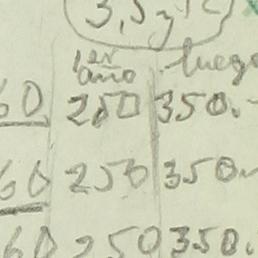 3,5 y
1er año luego
60 250 350.-
60 250 350.-
60 250 350.